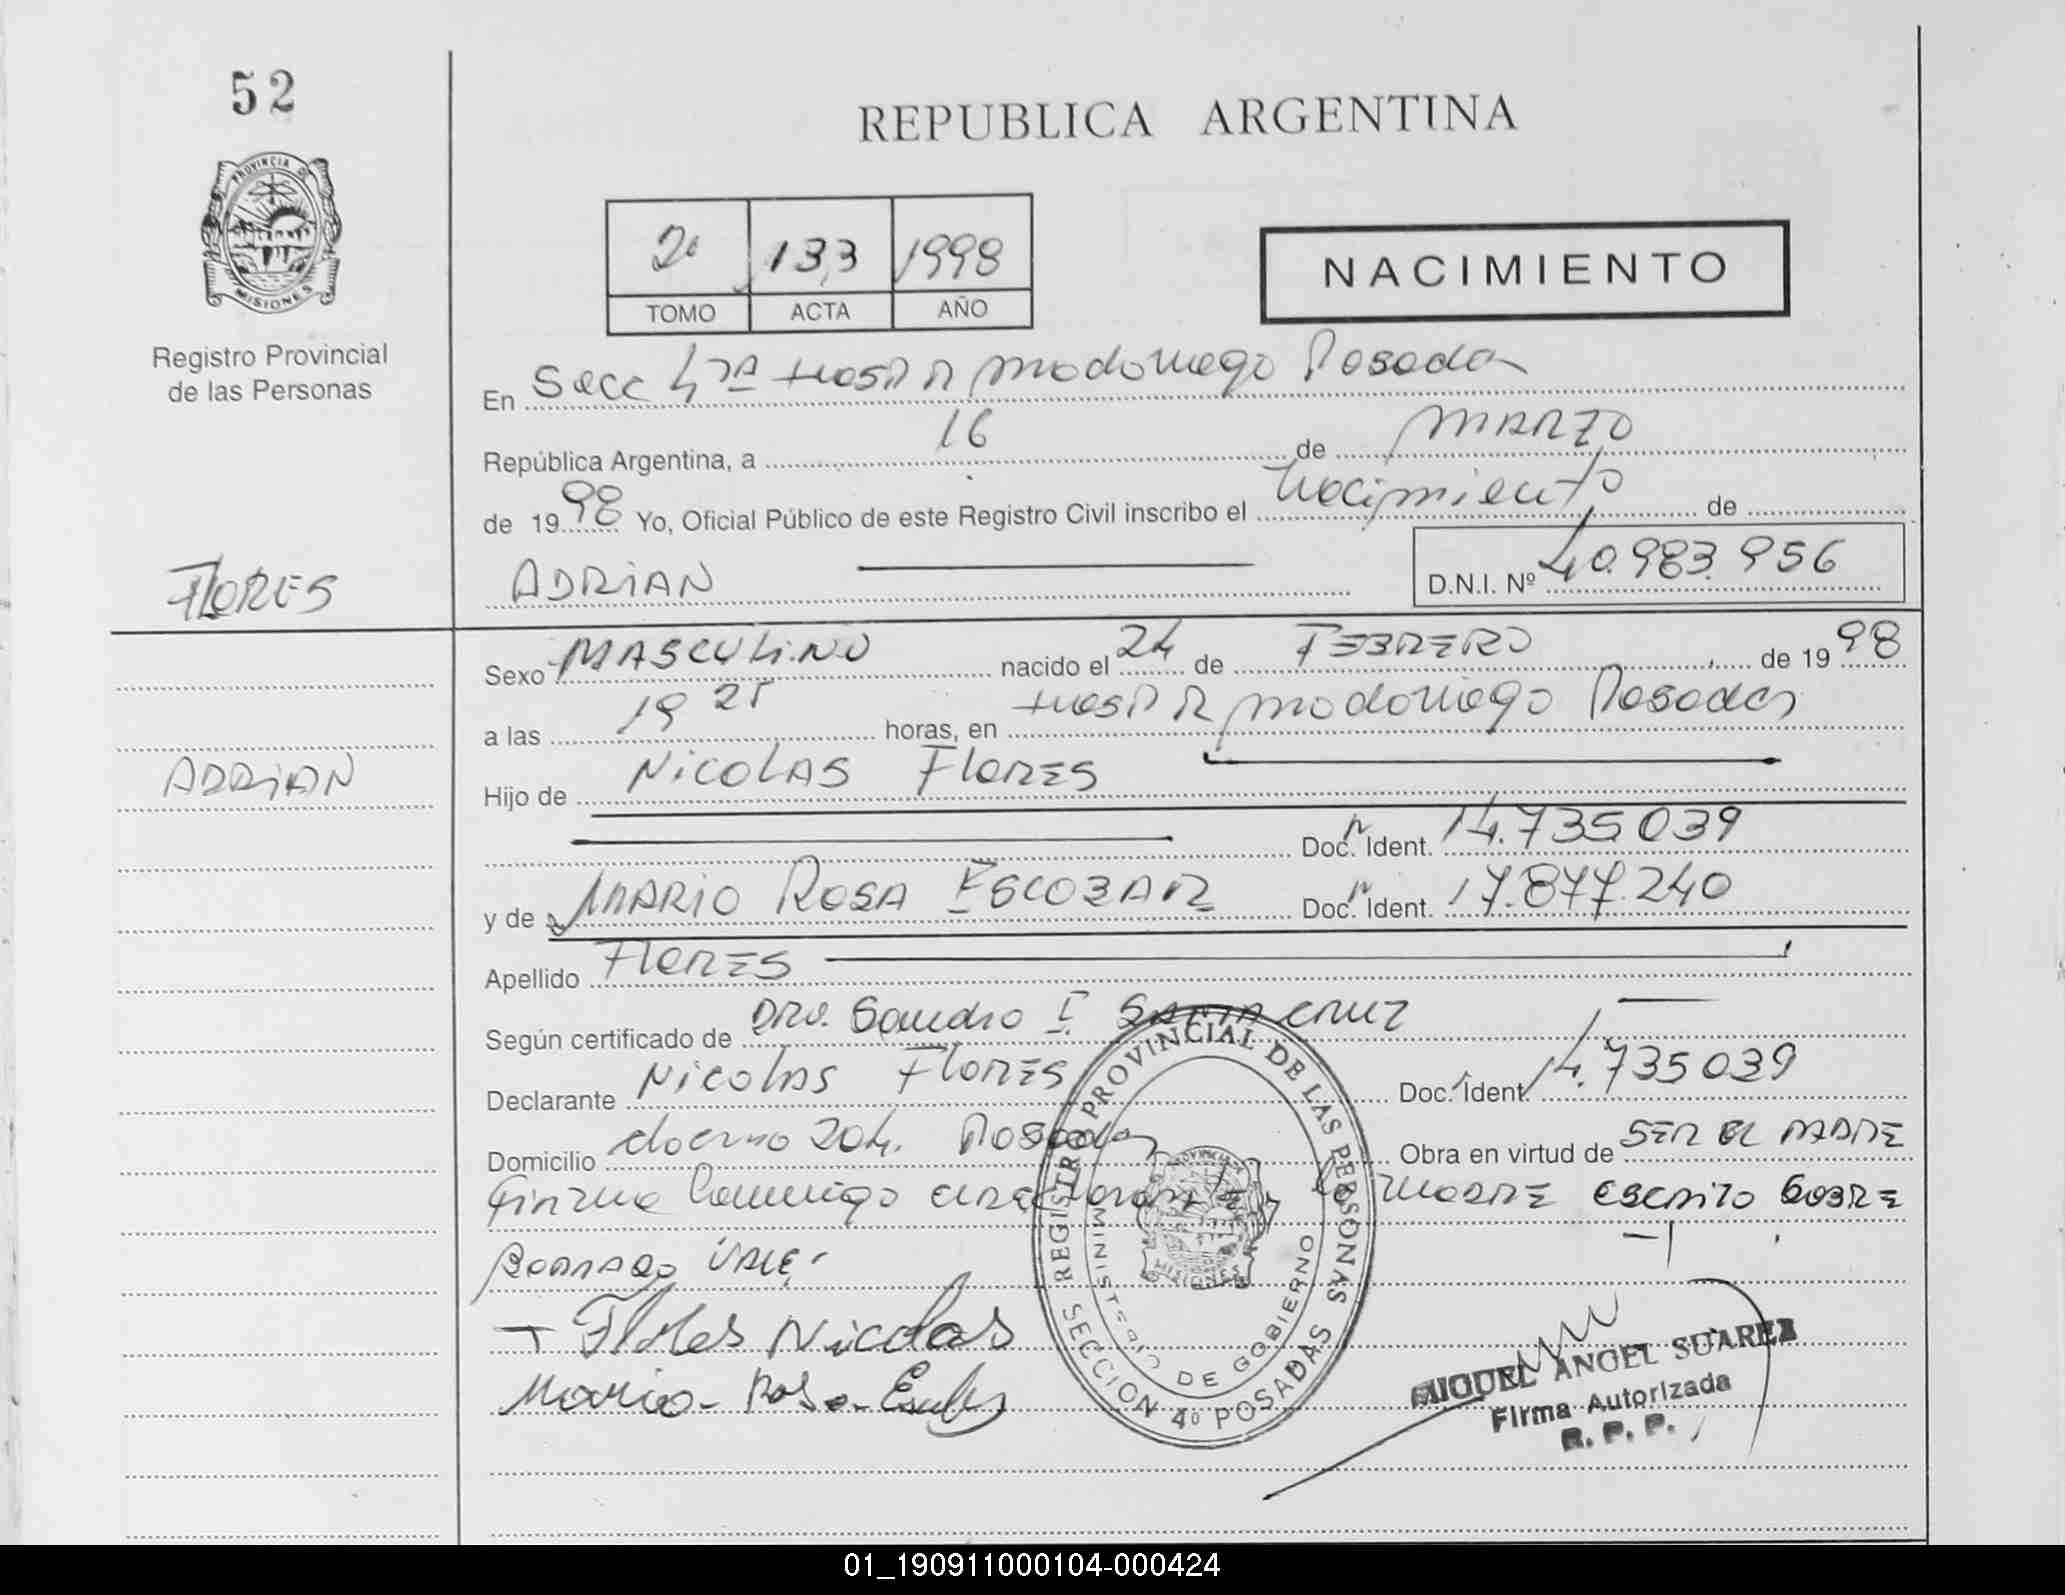 52
PROVINCIA DE
MISIONES
Registro Provincial
de las Personas
REPUBLICA ARGENTINA
2º 133 1998
TOMO ACTA AÑO
NACIMIENTO
En Secc 4ta Hosp R Madariaga Posadas
República Argentina, a 16 de MARZO
de 1998 Yo, Oficial Público de este Registro Civil inscribo el Nacimiento de
FLORES
ADRIAN
D.N.I. Nº 40.983.956
Sexo MASCULINO nacido el 24 de FEBRERO de 1998
a las 19 25 horas, en Hosp R Madariaga Posadas
ADRIAN
Hijo de NICOLAS FLORES
Doc. Ident. 14.735039
y de MARIA ROSA ESCOBAR Doc. Ident. 17.877.240
Apellido FLORES
Según certificado de Dra. Sandra I. SANTA CRUZ
Declarante NICOLAS FLORES Doc. Ident. 14.735039
Domicilio 204. Posadas Obra en virtud de SER EL PADRE
Firma Conmigo MADRE ESCRITO SOBRE
BORRADO VALE
Flores Nicolas
Maria Rosa
REGISTRO PROVINCIAL DE LAS PERSONAS
SECCION 4º POSADAS
MINISTERIO DE GOBIERNO
PROVINCIA DE
MISIONES
MIGUEL ANGEL SUAREZ
Firma Autorizada
R. P. P.
01_190911000104-000424